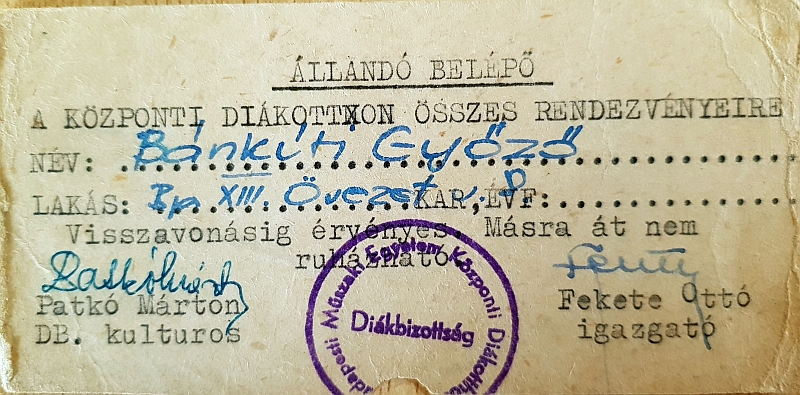 ÁLLANDÓ BELÉPŐ
A KÖZPONTI DIÁKOTTXON ÖSSZES RENDEZVÉNYEIRE
NÉV: Bánkúti Győző
LAKÁS: Bp XIII. Övezet u. 8 KAR,ÉVF:
Visszavonásig érvényes. Másra át nem
ruházható.
Patkó Márton
Patkó Márton Fekete Ottó
DB. kulturos igazgató
Budapesti Műszaki Egyetem Központi Diákotthon
Diákbizottság